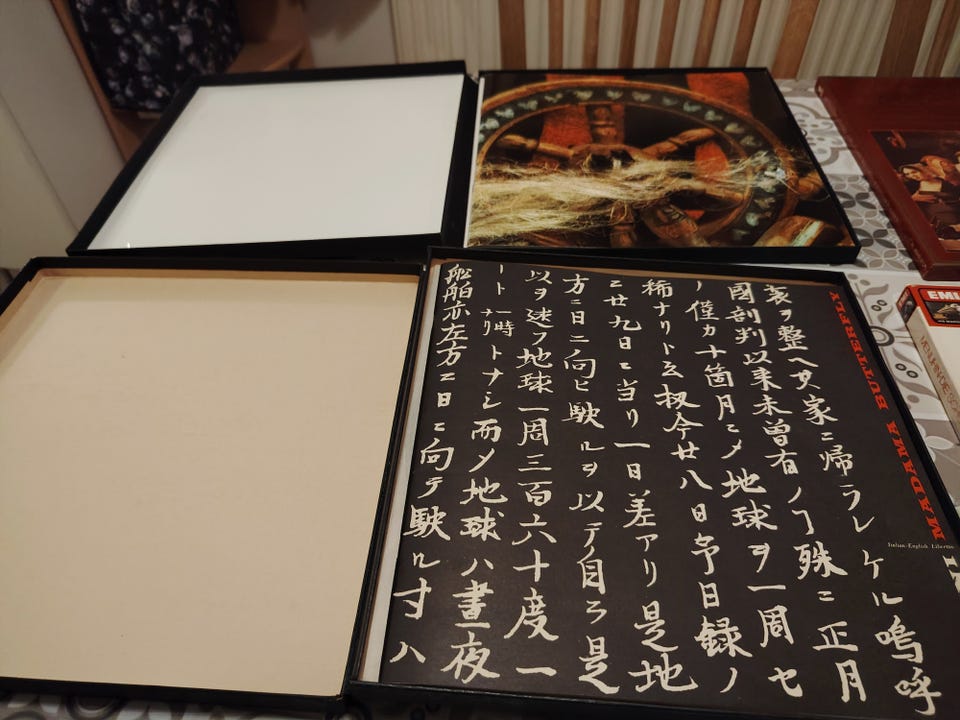 裝ヲ整ヘ其家ニ帰ラレケル嗚呼
國剖判以来未曽有ノヿ殊ニ正月
ノ僅カ十箇月ニメ地球ヲ一周セ
稀ナリト云扨今廿八日予日録ノ
ニ廿九日ニ当リ一日差アリ是地
方ニ日ニ向ヒ駛ルヲ以テ自ラ是
以ヲ述フ地球一周三百六十度一
一時ナリトナシ而メ地球ハ晝夜
船舶亦左方ニ日ニ向テ駛ル寸ハ
MADAMA BUTTERFLY
Italian-English Libretto
EMI